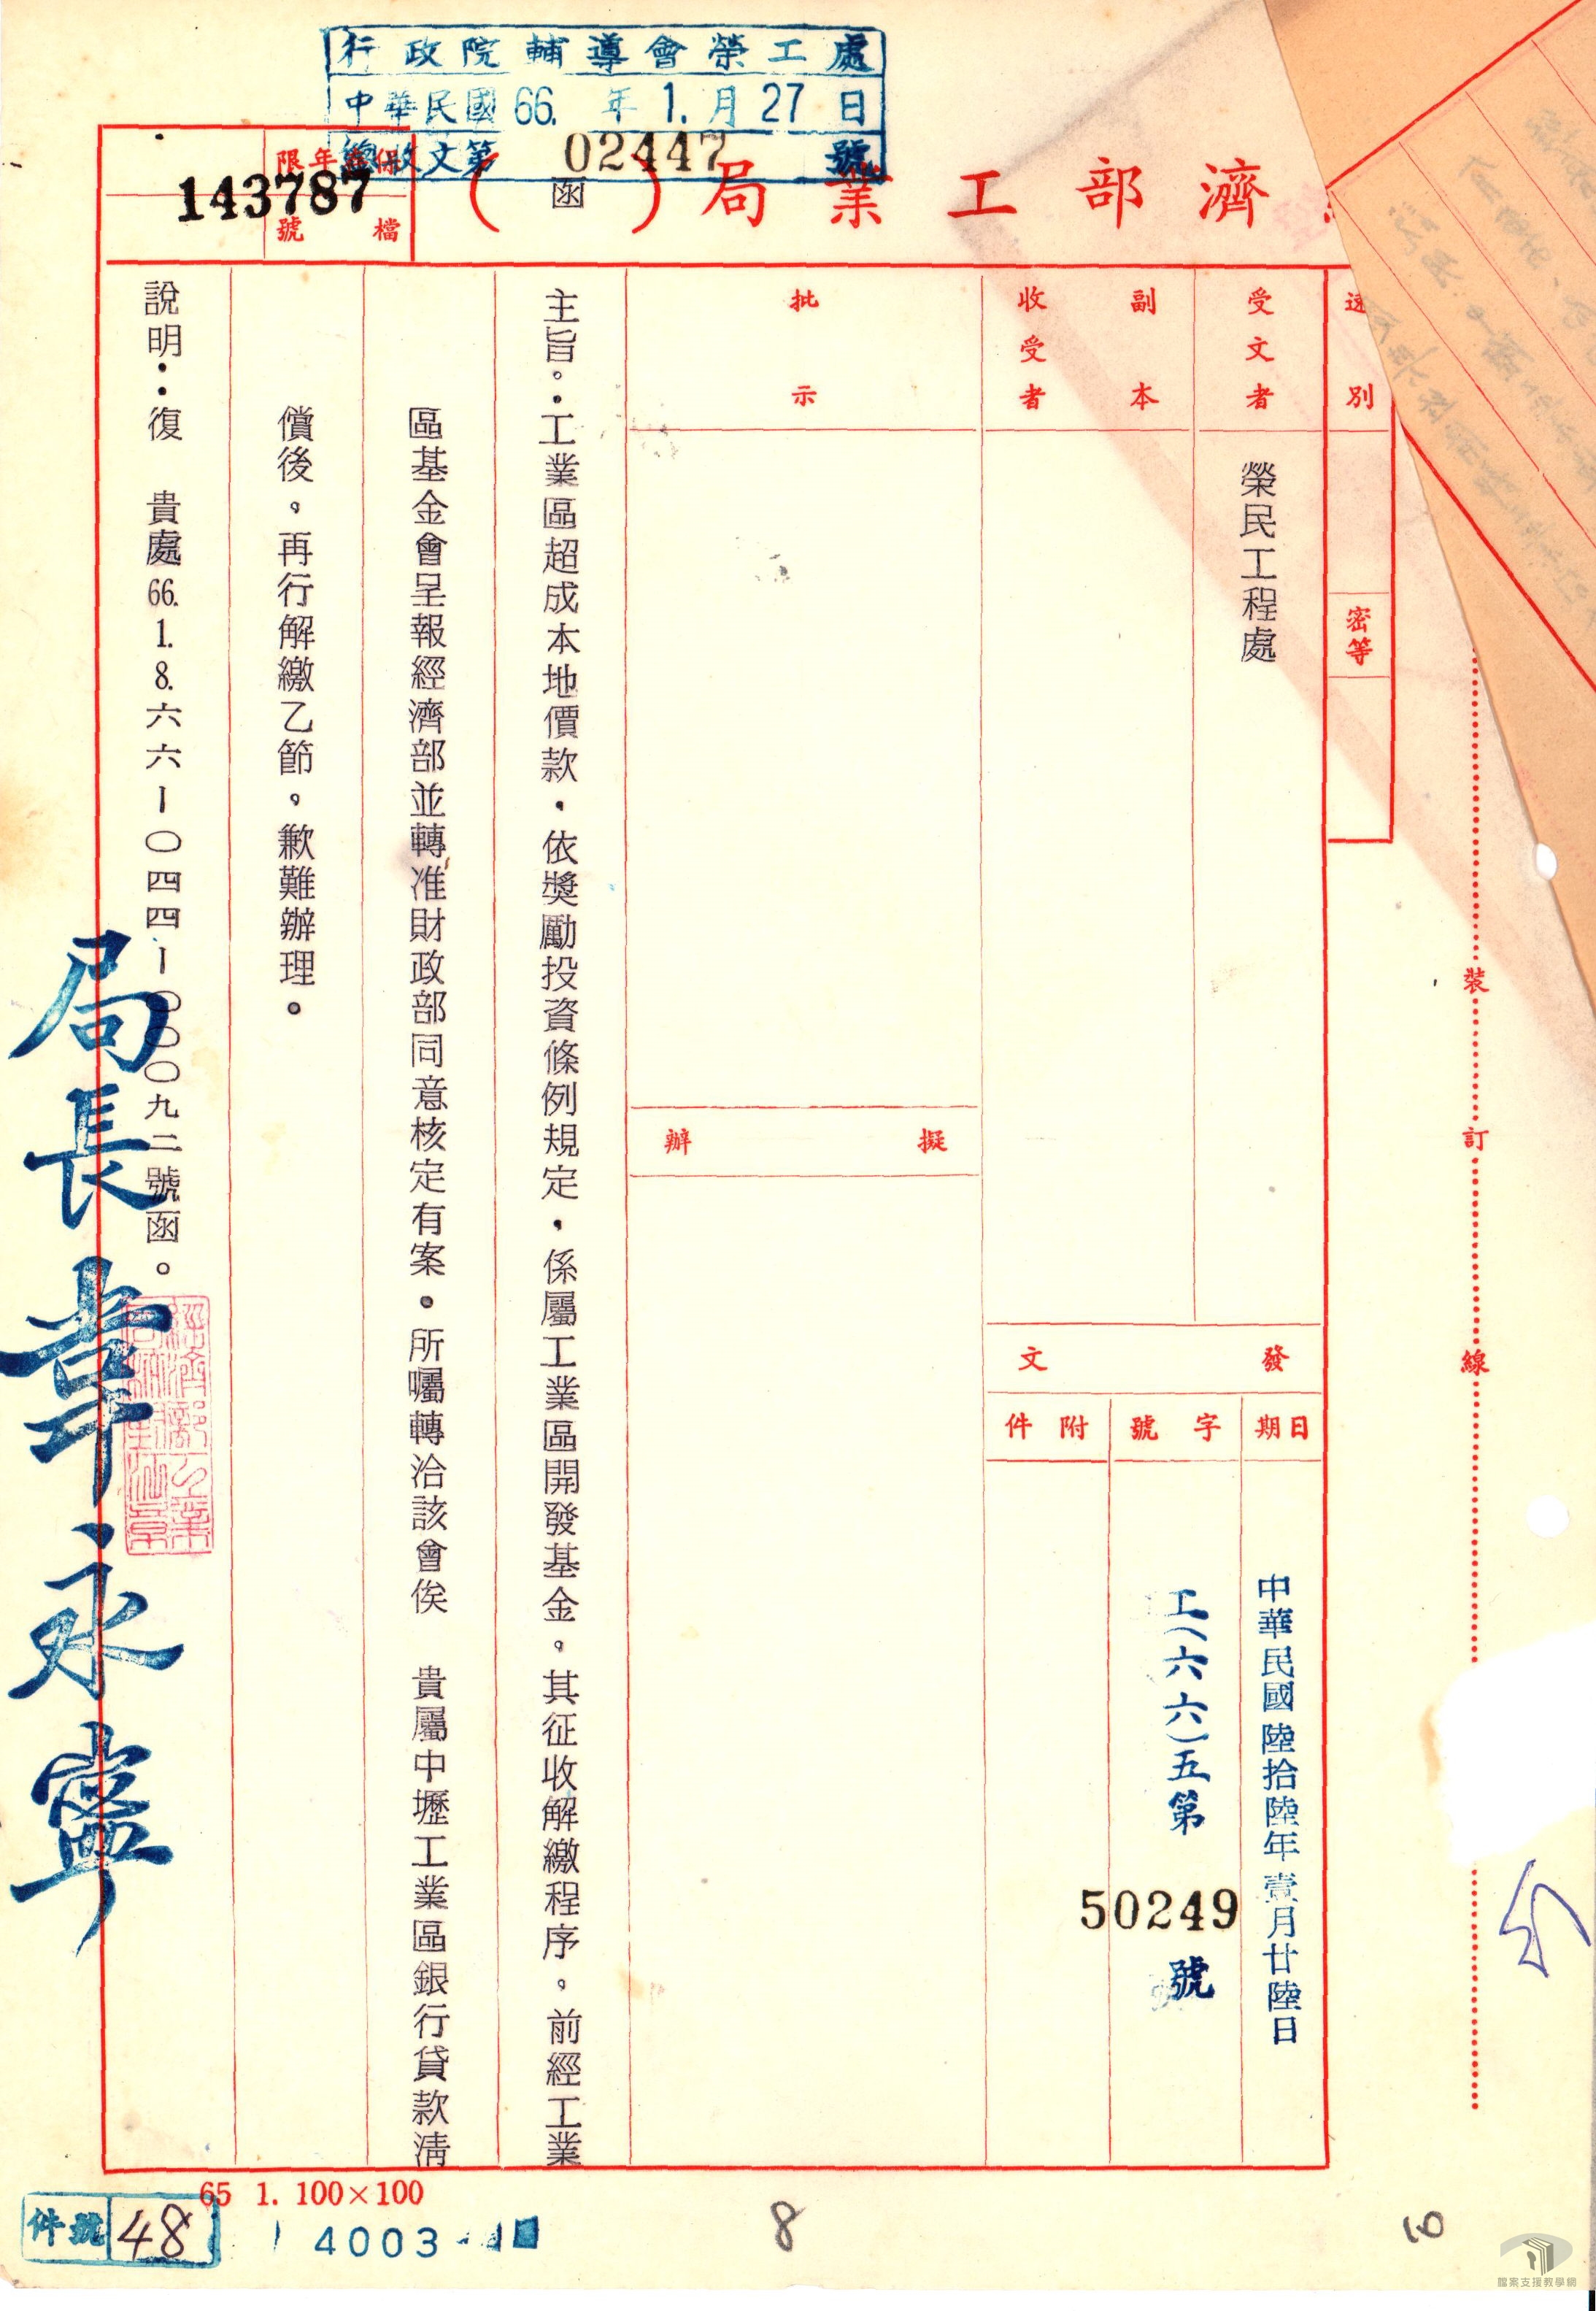 行政院輔導會榮工處
中華民國66.年1.月27日
總收文第02447號
濟部工業局(函)
保存年限
檔號
143787
速別
密等
受文者
榮民工程處
副本
收受者
發文
日期
中華民國陸拾陸年壹月廿陸日
字號
工(六六)五第50249號
附件
批示
擬辦
主旨：工業區超成本地價款，依獎勵投資條例規定，係屬工業區開發基金。其征收解繳程序，前經工業
區基金會呈報經濟部並轉准財政部同意核定有案。所囑轉洽該會俟 貴屬中壢工業區銀行貸款清
償後，再行解繳乙節，歉難辦理。
說明：復 貴處66.1.8.六六—〇四四—〇〇〇九二號函。
局長韋永寧
裝訂線
65 1. 100×100
件號 48
4003
8
10
檔案支援教學網